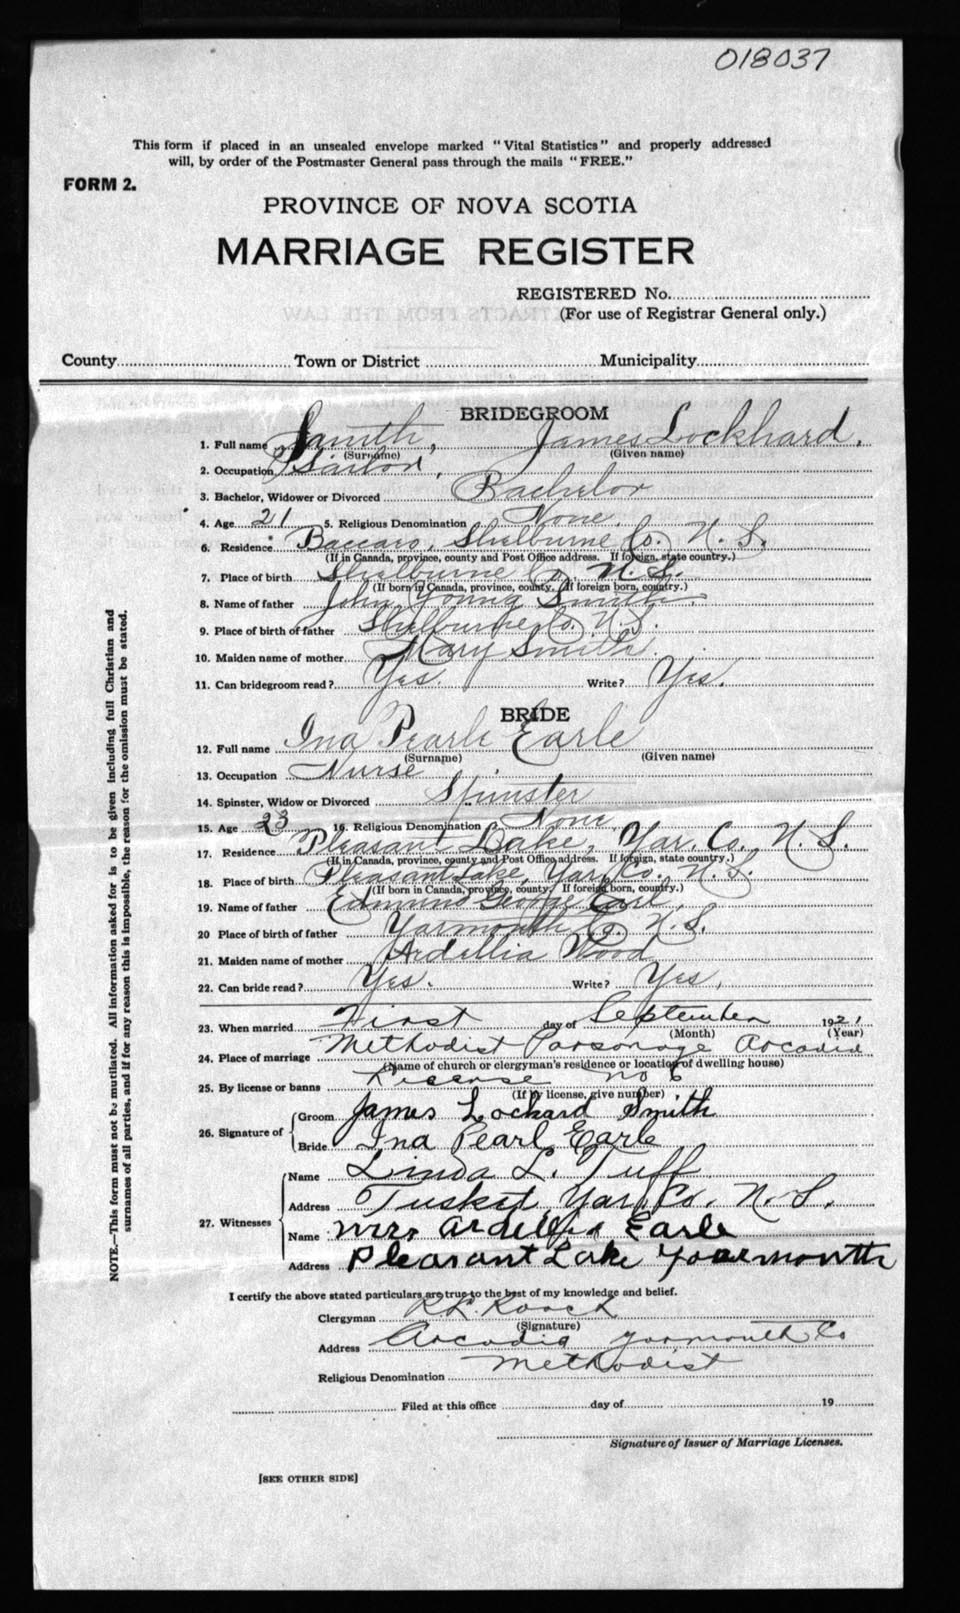 018037
This form if placed in an unsealed envelope marked "Vital Statistics" and properly addressed
will, by order of the Postmaster General pass through the mails "FREE."
FORM 2.
PROVINCE OF NOVA SCOTIA
MARRIAGE REGISTER
REGISTERED No.
(For use of Registrar General only.)
County Town or District Municipality
BRIDEGROOM
1. Full name Smith, James Lockhard.
(Surname) (Given name)
2. Occupation Sailor.
3. Bachelor, Widower or Divorced Bachelor
4. Age 21 5. Religious Denomination None.
6. Residence Baccaro, Shelburne Co. N. S.
(If in Canada, province, county and Post Office address. If foreign, state country.)
7. Place of birth Shelburne Co. N. S.
(If born in Canada, province, county. If foreign born, country.)
8. Name of father John Young Smith.
9. Place of birth of father Shelburne Co. N. S.
10. Maiden name of mother Mary Smith.
11. Can bridegroom read? Yes. Write? Yes.
BRIDE
12. Full name Ina Pearle Earle
(Surname) (Given name)
13. Occupation Nurse
14. Spinster, Widow or Divorced Spinster
15. Age 23 16. Religious Denomination None
17. Residence Pleasant Lake, Yar. Co. N. S.
(If in Canada, province, county and Post Office address. If foreign, state country.)
18. Place of birth Pleasant Lake, Yar. Co. N. S.
(If born in Canada, province, county. If foreign born, country.)
19. Name of father Edmund George Earl,
20 Place of birth of father Yarmouth Co. N. S.
21. Maiden name of mother Ardellia Wood
22. Can bride read? Yes. Write? Yes.
23. When married First day of September 1921
(Month) (Year)
24. Place of marriage Methodist Parsonage Arcadia
(Name of church or clergyman's residence or location of dwelling house)
25. By license or banns License no 6
(If by license, give number)
26. Signature of Groom James Lockard Smith
Bride Ina Pearl Earle
27. Witnesses Name Linda L. Tuff
Address Tusket, Yar. Co. N. S.
Name Mrs Ardellia Earle
Address Pleasant Lake Yoarmonth
I certify the above stated particulars are true to the best of my knowledge and belief.
Clergyman Roach
(Signature)
Address Arcadia Yarmouth Co
Religious Denomination Methodist
Filed at this office day of 19
Signature of Issuer of Marriage Licenses.
[SEE OTHER SIDE]
NOTE.—This form must not be mutilated. All information asked for is to be given including full Christian and
surnames of all parties, and if for any reason this is impossible, the reason for the omission must be stated.